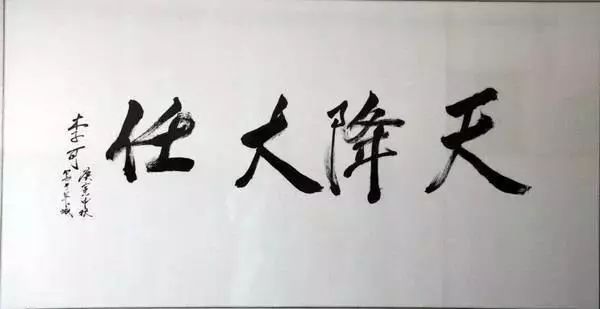 天降大任
李可
庚寅